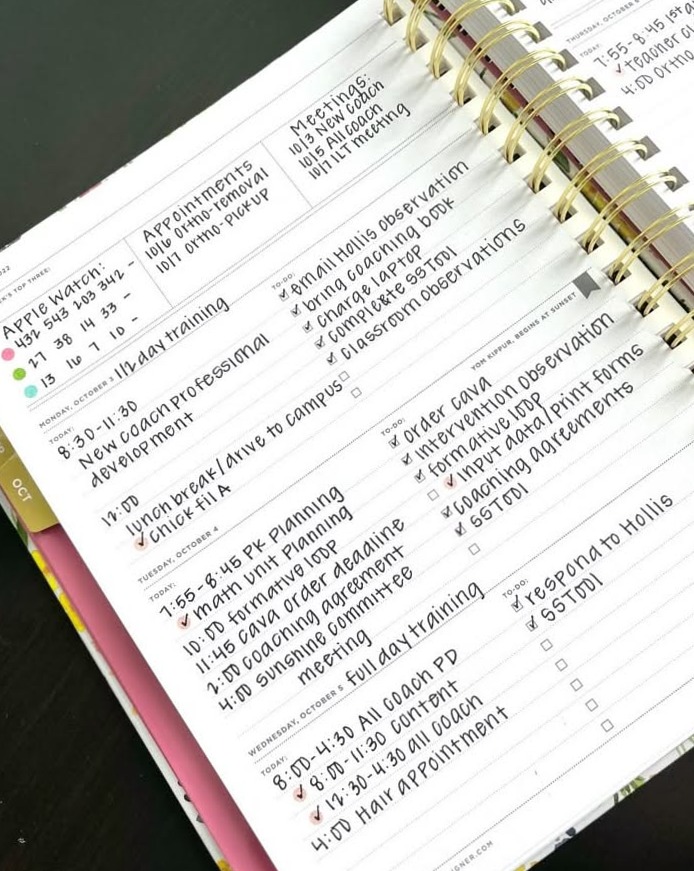 2022
WEEK'S TOP THREE:
Apple Watch:
432 543 203 342 -
27 38 14 33 -
13 16 7 10 -
Appointments
10/6 Ortho-removal
10/7 Ortho-pickup
Meetings:
10/3 New coach
10/5 All coach
10/7 ILT meeting
MONDAY, OCTOBER 3 1/2 day training
TODAY:
8:30-11:30
New coach professional
development
12:00
lunch break/drive to campus
Chick fil A
TO-DO:
email Hollis observation
bring coaching book
charge laptop
complete SSTODI
classroom observations
YOM KIPPUR, BEGINS AT SUNSET
TUESDAY, OCTOBER 4
TODAY:
7:55-8:45 PK Planning
math unit planning
10:00 formative loop
11:45 cava order deadline
2:00 coaching agreement
4:00 sunshine committee
meeting
TO-DO:
order cava
intervention observation
formative loop
input data/print forms
coaching agreements
SSTODI
WEDNESDAY, OCTOBER 5 full day training
TODAY:
8:00-4:30 All coach PD
8:00-11:30 content
12:30-4:30 all coach
4:00 Hair appointment
TO-DO:
respond to Hollis
SSTODI
OCT
THURSDAY, OCTOBER
TODAY:
7:55-8:45 1st
teacher
4:00 Ortho